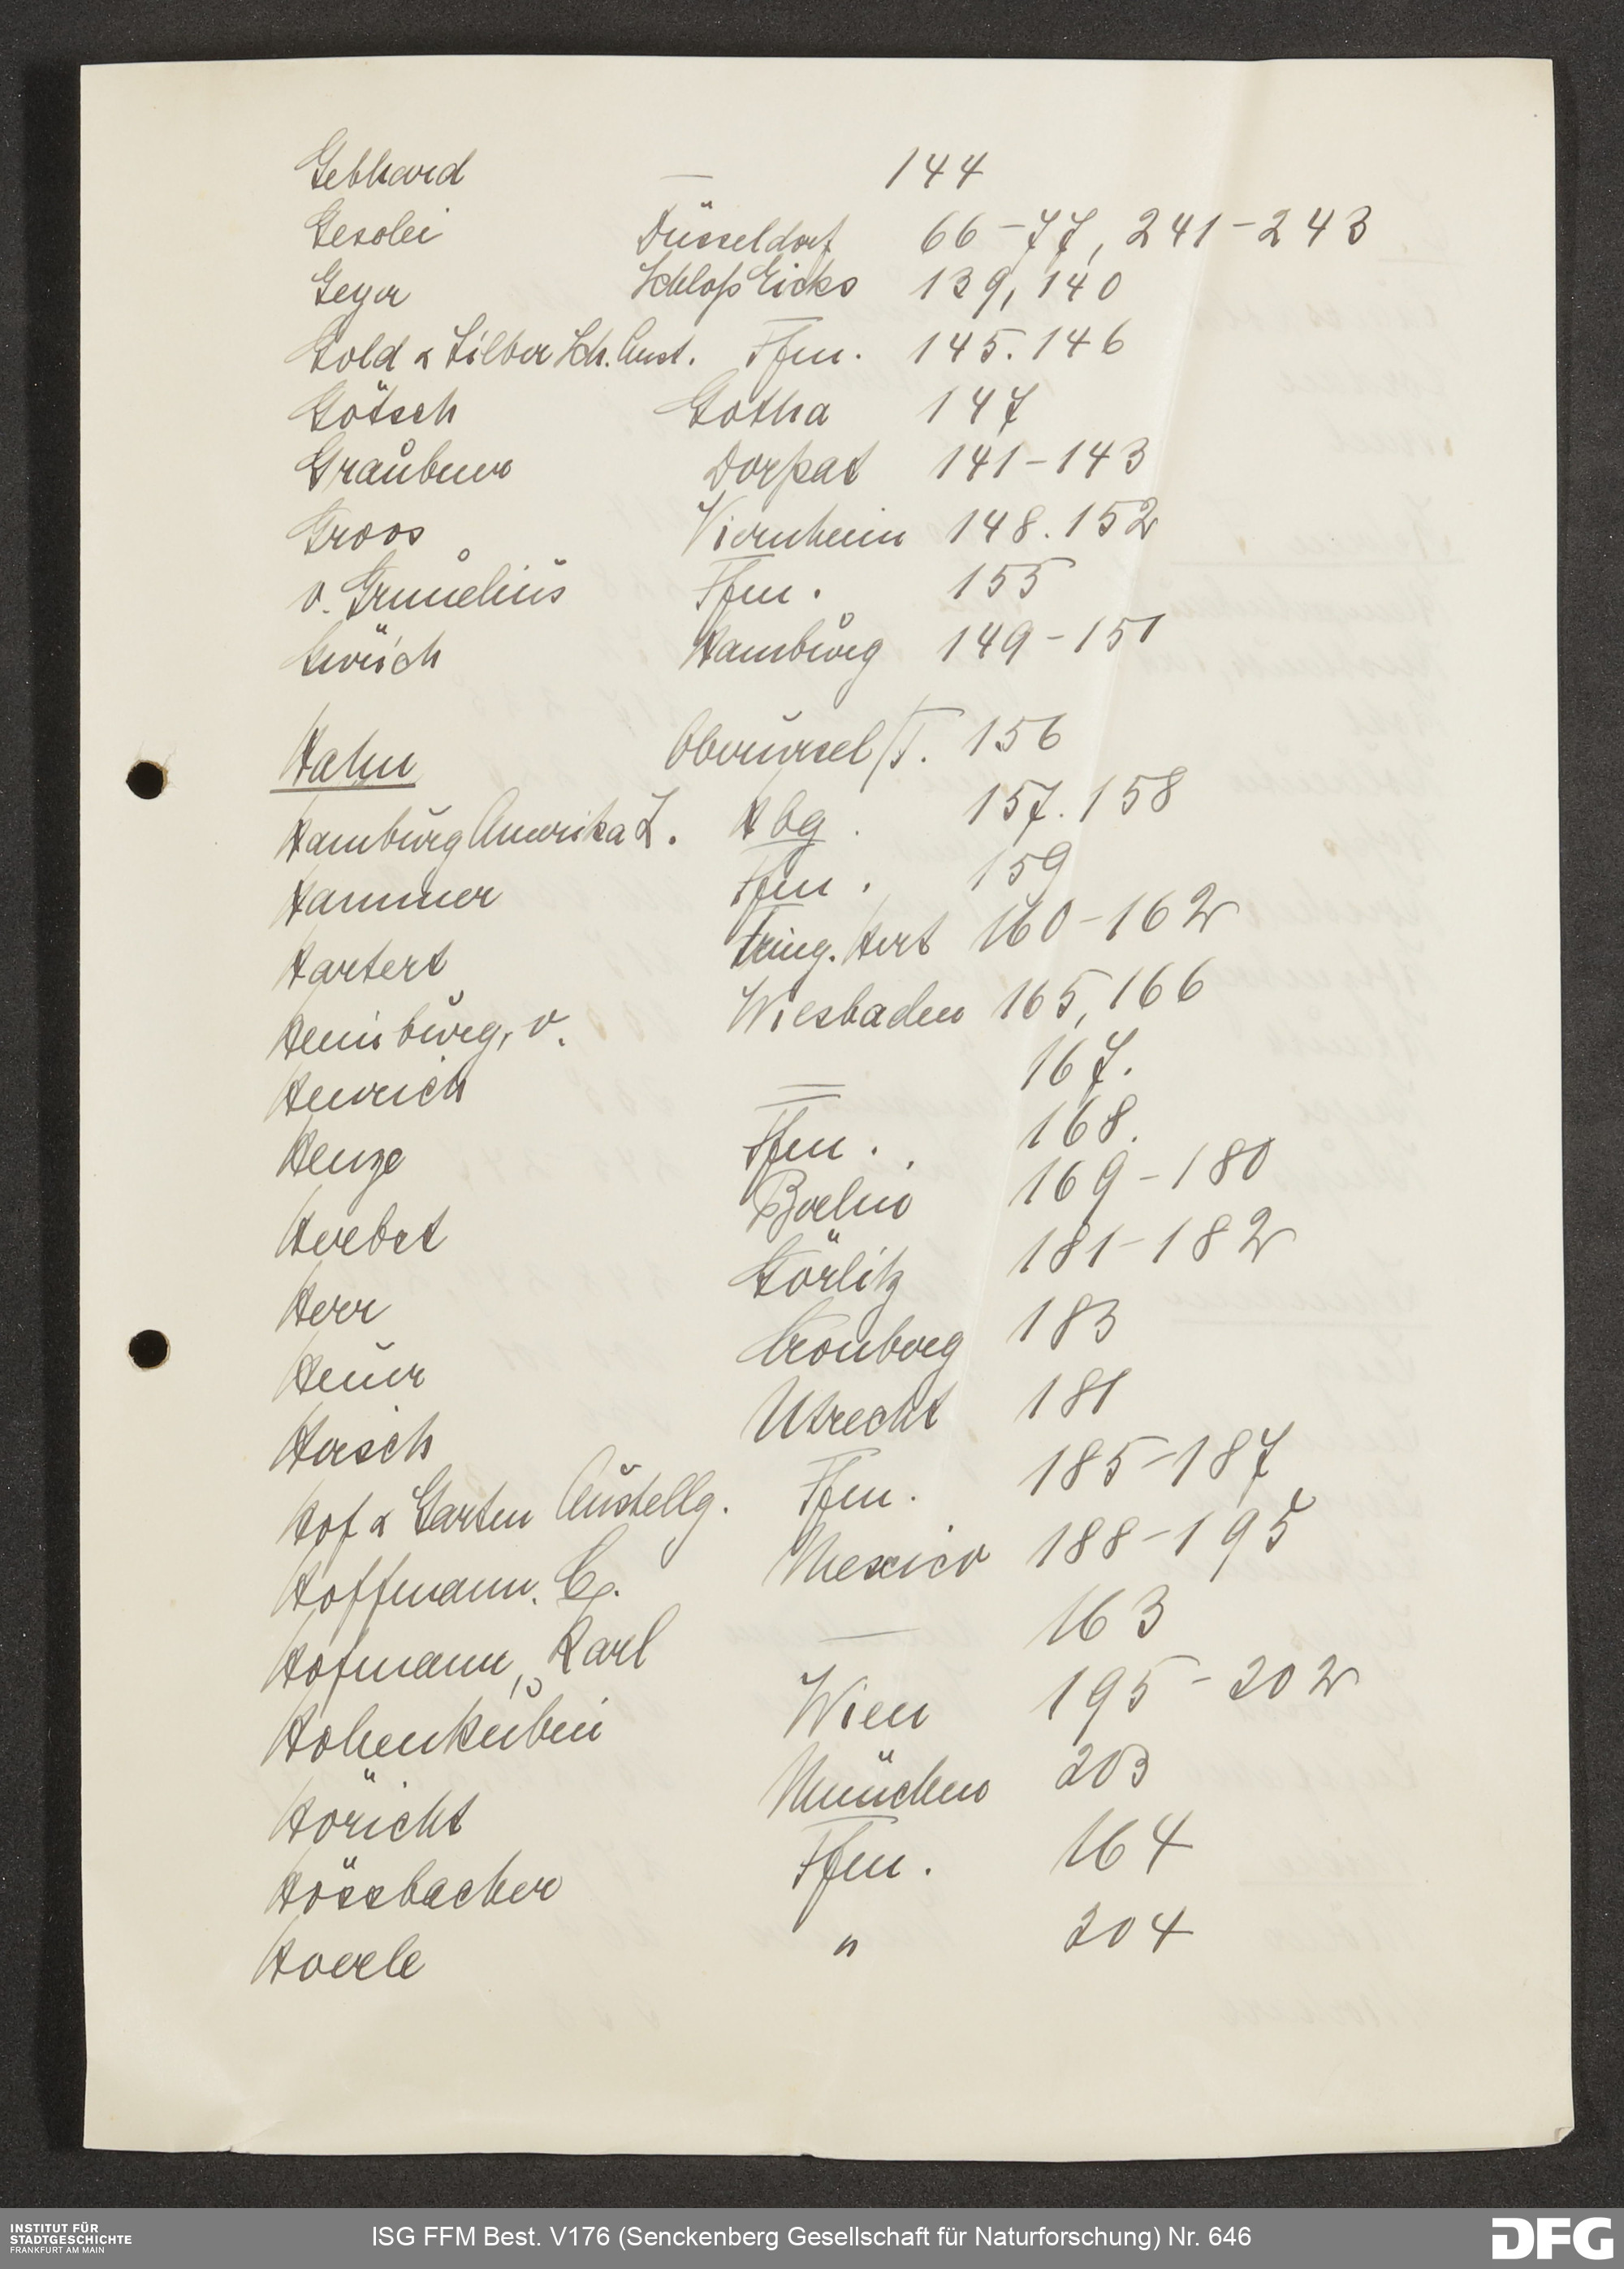 Gebhard — 144
Gesolei Düsseldorf 66-77, 241-243
Geyer Schloß Eicks 139, 140
Gold & Silber Sch. Anst. Ffm. 145. 146
Götsch Gotha 147
Graubner Dorpat 141-143
Groos Viernheim 148. 152
v. Grunelius Ffm. 155
Hamburg 149-151
Hahn Oberursel/T. 156
Hamburg Amerika L. Hbg. 157. 158
Hammer Ffm. 159
Hartert Tring. Hert 160-162
Heimburg, v. Wiesbaden 165, 166
Henrich — 167.
Henze Ffm. 168.
Herbst Berlin 169-180
Herr Görlitz 181-182
Heuer Cronberg 183
Hirsch Utrecht 181
Hof & Garten Austellg. Ffm. 185-187
Hoffmann. C. Mexico 188-195
Hofmann, Karl — 163
Wien 195-202
Höricht München 203
Hössbacher Ffm. 164
Hoerle " 204
INSTITUT FÜR
STADTGESCHICHTE
FRANKFURT AM MAIN
ISG FFM Best. V176 (Senckenberg Gesellschaft für Naturforschung) Nr. 646
DFG